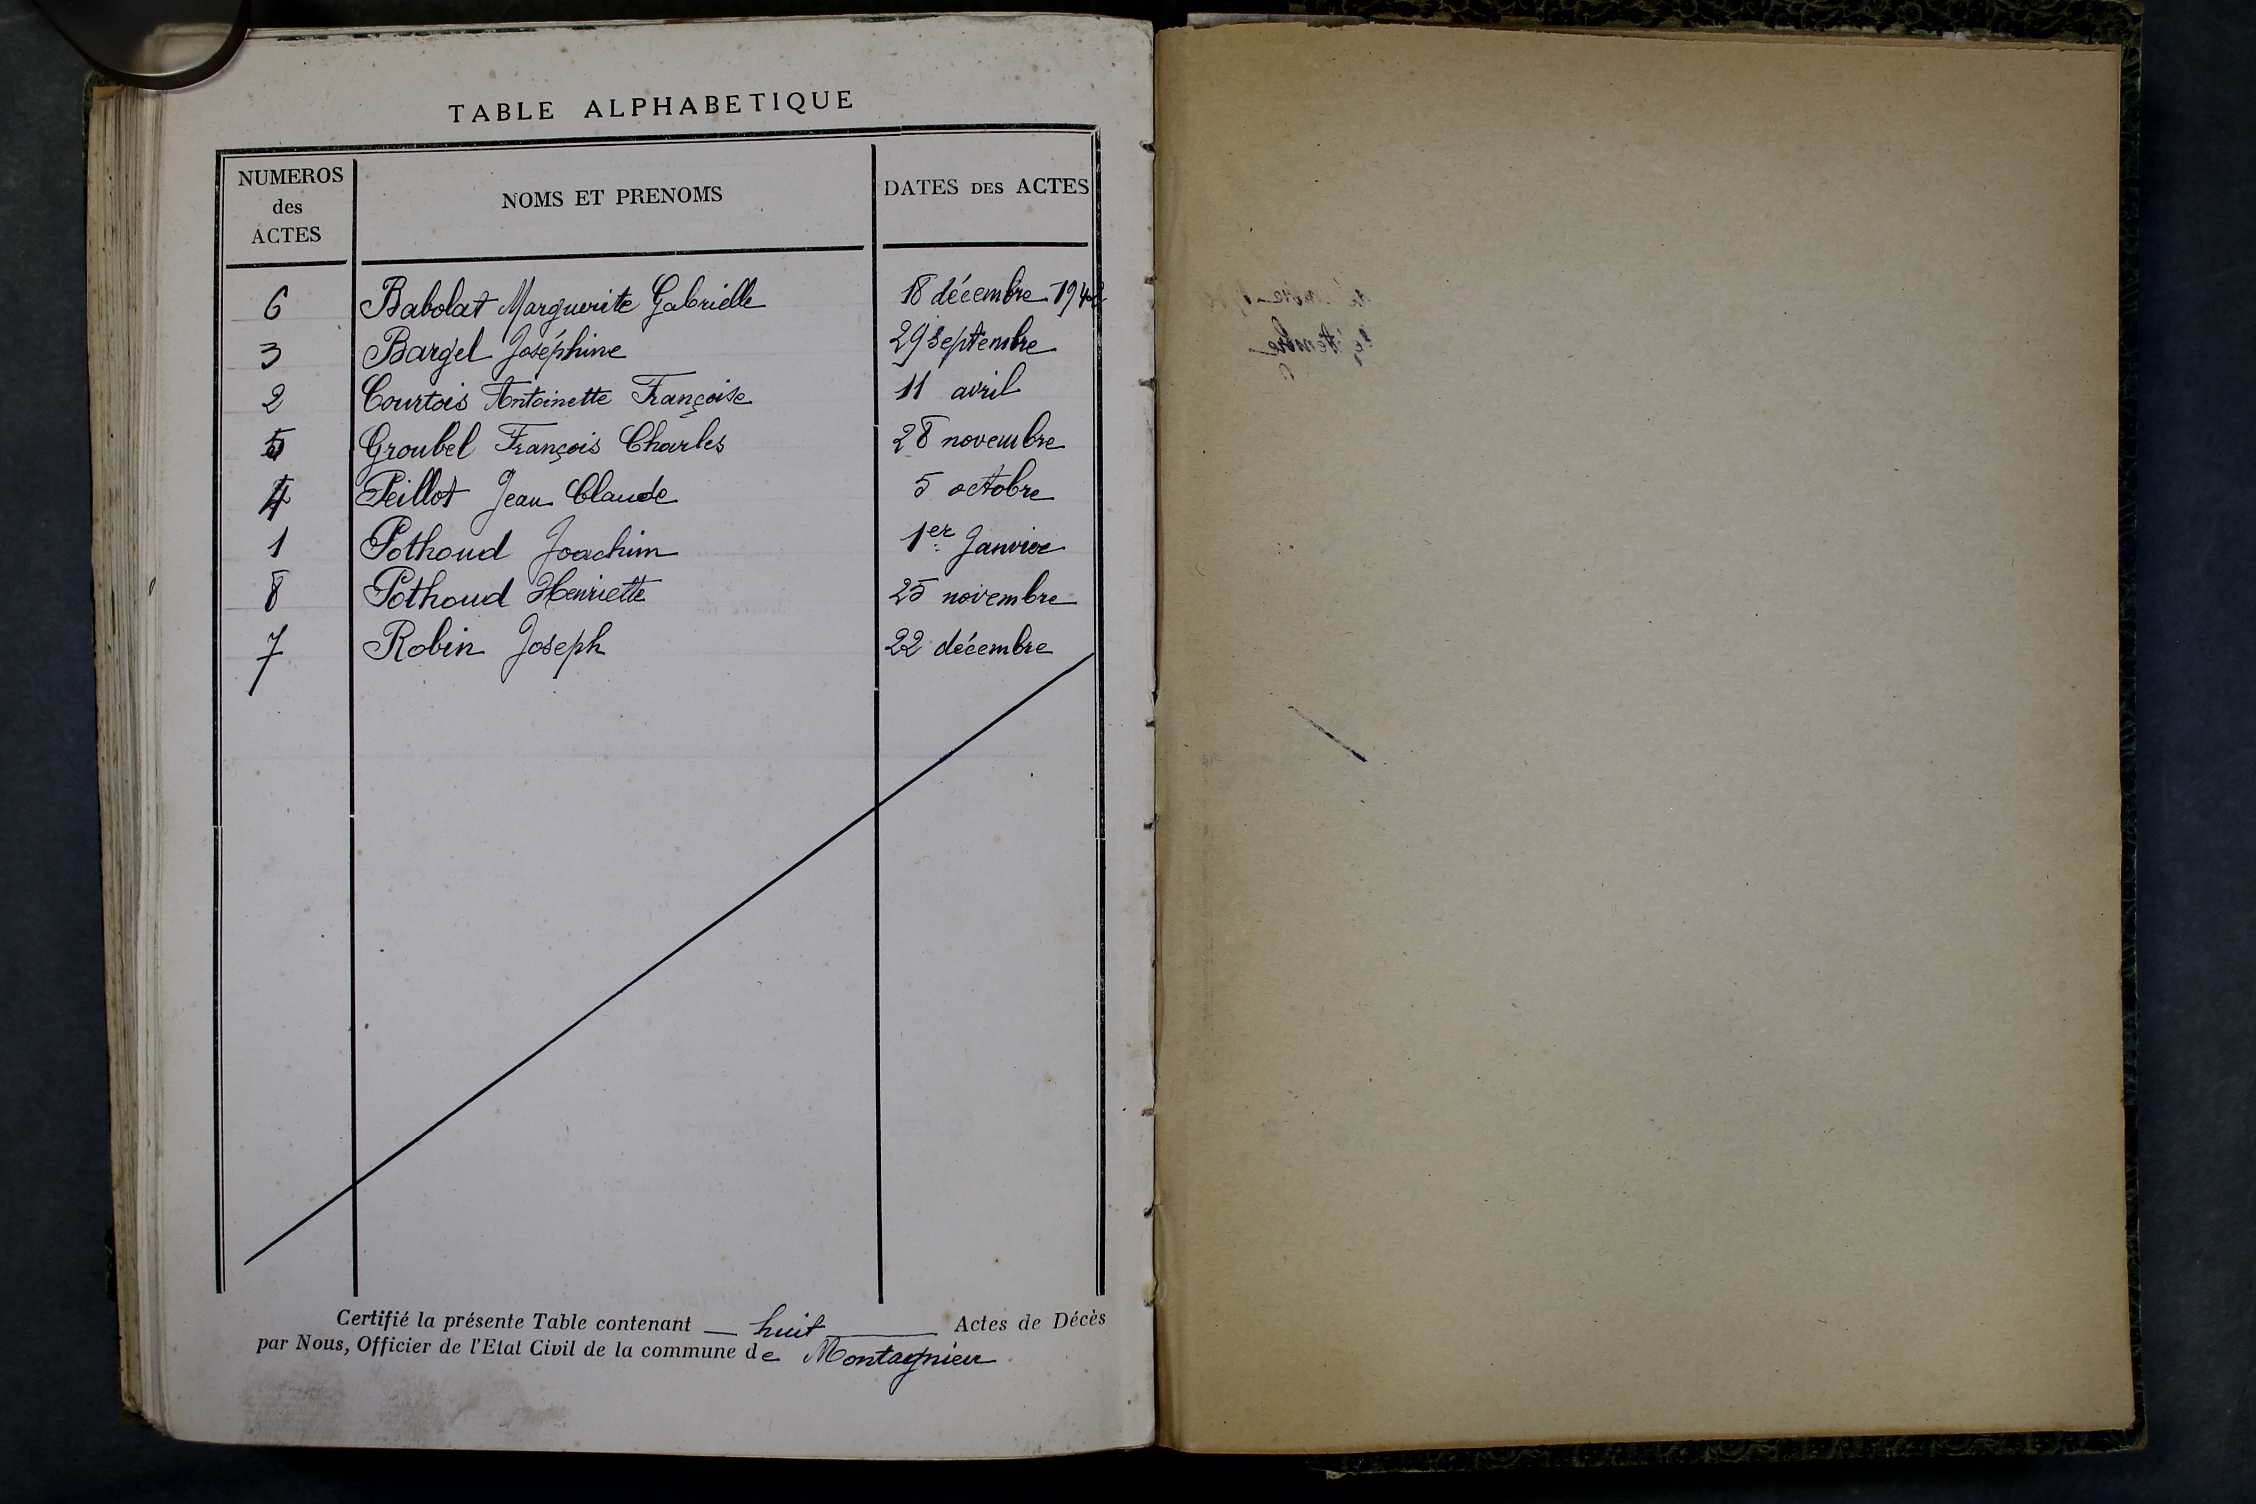 TABLE ALPHABETIQUE
NUMEROS des ACTES NOMS ET PRENOMS DATES DES ACTES
6 Babolat Marguerite Gabrielle 18 décembre 194
3 Bargel Joséphine 29 septembre
2 Courtois Antoinette Françoise 11 avril
5 Groubel François Charles 28 novembre
4 Peillot Jean Claude 5 octobre
1 Pothoud Joachim 1er Janvier
8 Pothoud Henriette 25 novembre
7 Robin Joseph 22 décembre
Certifié la présente Table contenant huit Actes de Décès
par Nous, Officier de l'Etat Civil de la commune de Montagnieu